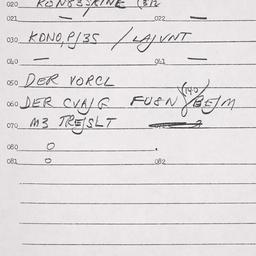 020 KON8SSKINE (312
021 — 022 —
030 KONO,P/35 / LAJVNT
040 — 041 —
050 DER VORCL
060 DER CVAJG FUSN (140) BEJM
070 M3 TREJSLT
080 0 .
081 0 082